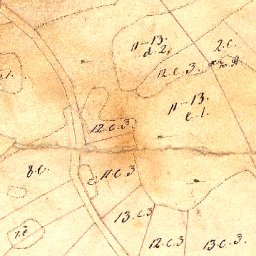 11-13.
d.2.
2.C.
12.C.3.
11-13.
e.1.
12.C.3
8.C.
11.C.3
13.C.3
12.C.3
13.C.3.